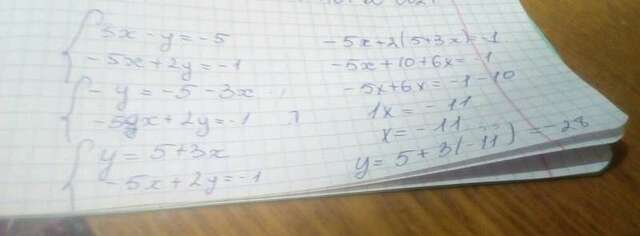 3x - y = -5
-5x + 2y = -1
- y = -5 - 3x
-5x + 2y = -1
y = 5 + 3x
-5x + 2y = -1
-5x + 2(5 + 3x) = -1
-5x + 10 + 6x = -1
-5x + 6x = -1 - 10
1x = -11
x = -11
y = 5 + 3(-11) = -28